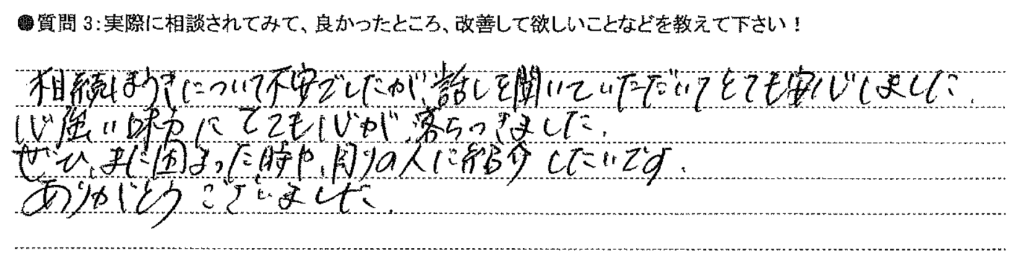 ●質問3：実際に相談されてみて、良かったところ、改善して欲しいことなどを教えて下さい！
相続ほうきについて不安でしたが、話しを聞いていただいてとても安心しました。
心強い味方にとても心が落ちつきました。
ぜひ、また困まった時や、周りの人に紹介したいです。
ありがとうございました。